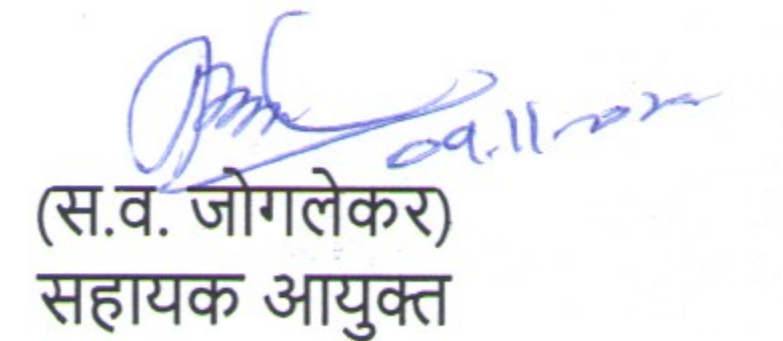 09.11.2020
(स.व. जोगलेकर)
सहायक आयुक्त